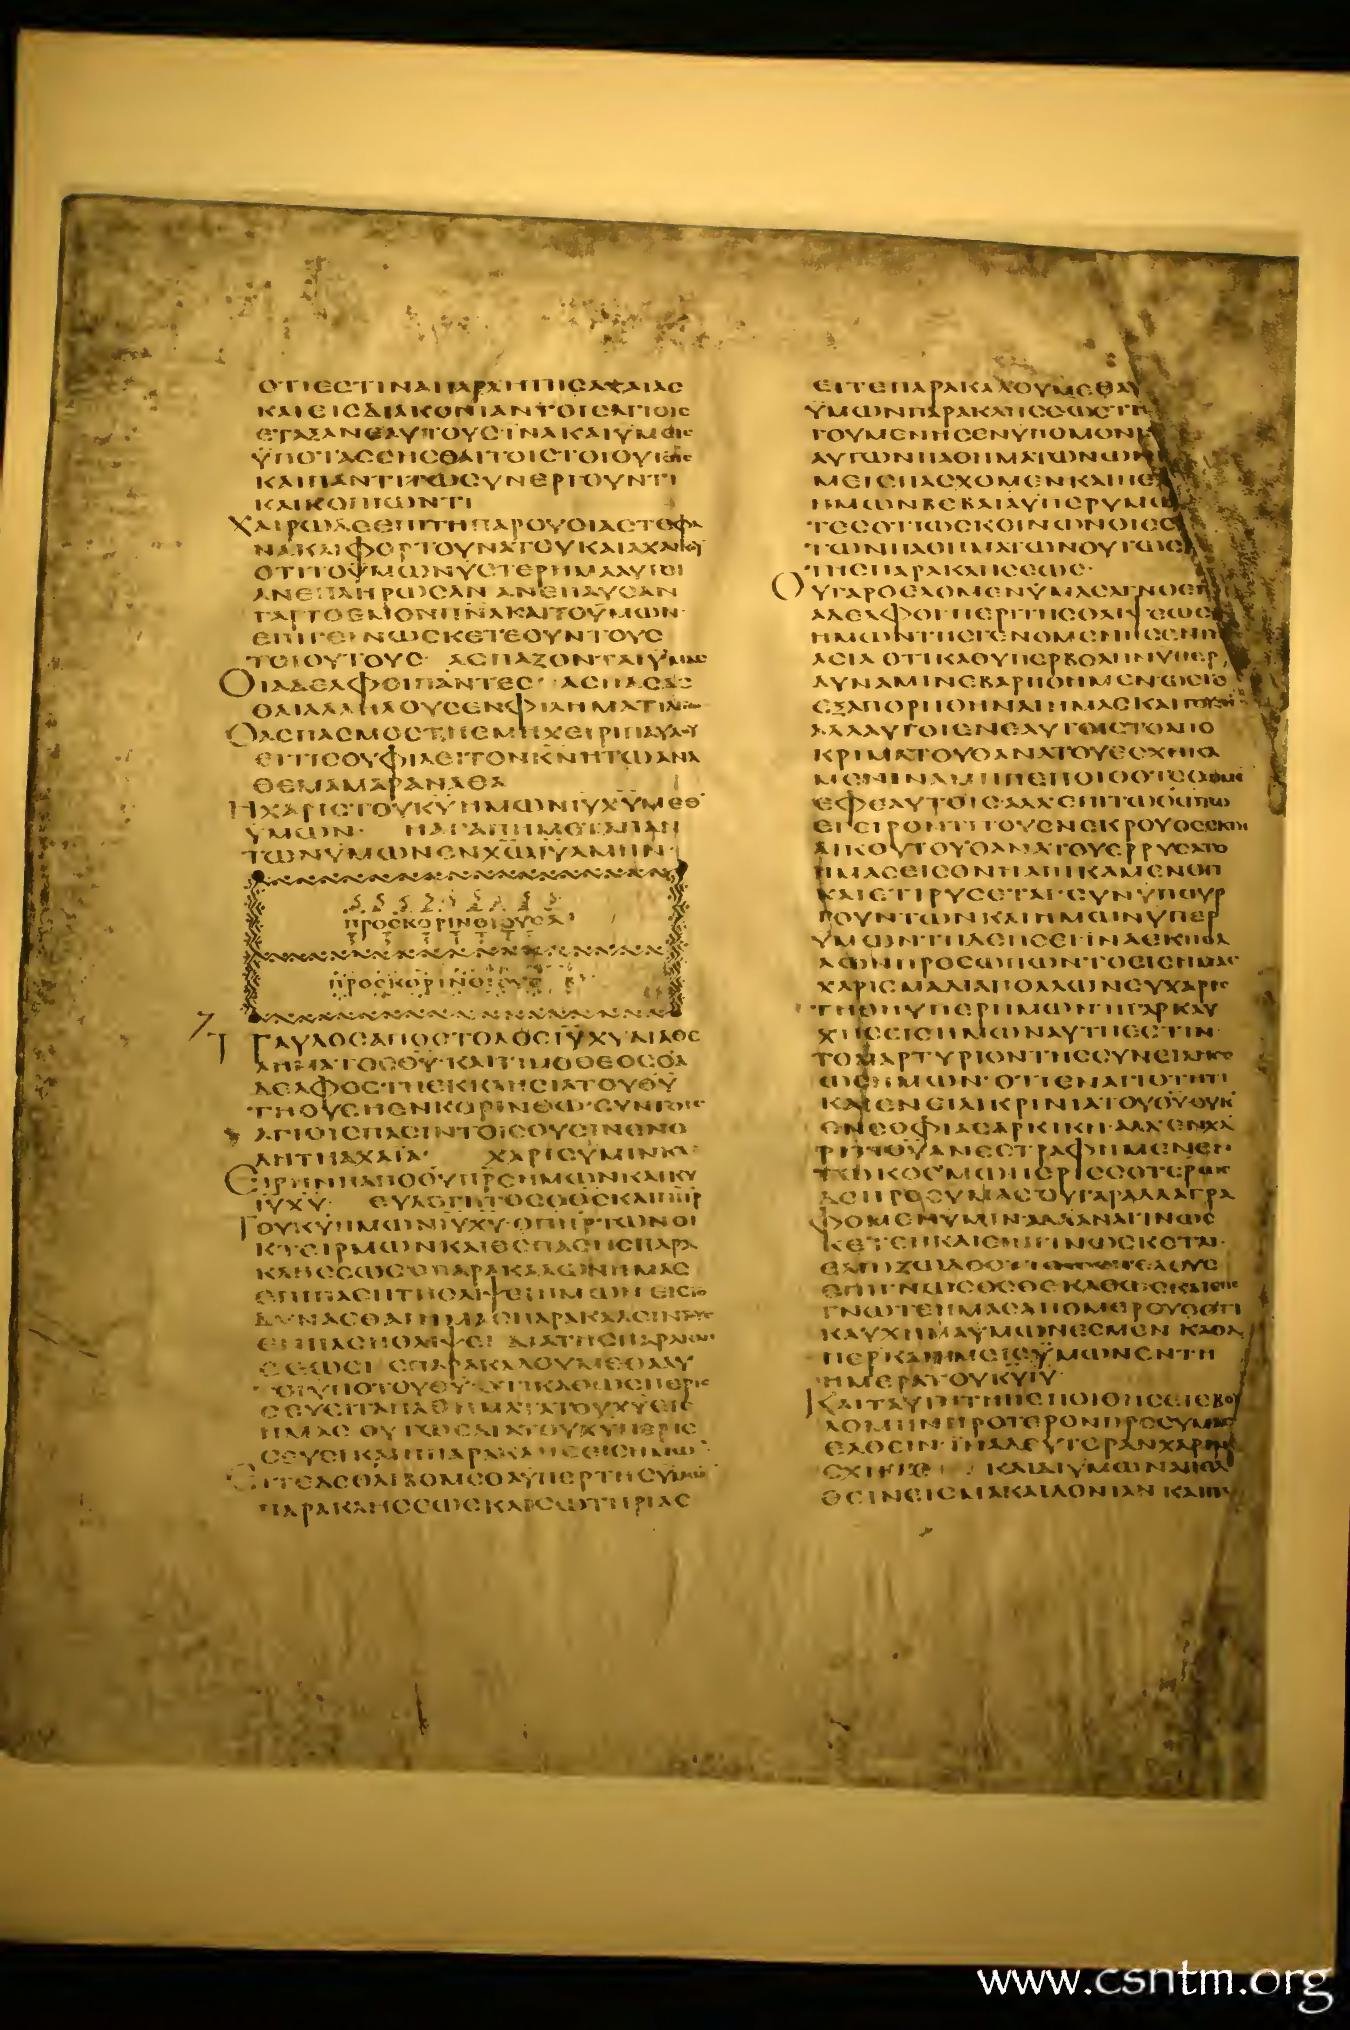 ΟΤΙΕΣΤΙΝΑΠΑΡΧΗΤΗΣΑΧΑΙΑΣ
ΚΑΙΕΙΣΔΙΑΚΟΝΙΑΝΤΟΙΣΑΓΙΟΙΣ
ΕΤΑΞΑΝΕΑΥΤΟΥΣΙΝΑΚΑΙΥΜΕΙΣ
ΫΠΟΤΑΣΣΗΣΘΑΙΤΟΙΣΤΟΙΟΥΤΟΙΣ
ΚΑΙΠΑΝΤΙΤΩΣΥΝΕΡΓΟΥΝΤΙ
ΚΑΙΚΟΠΙΩΝΤΙ
ΧΑΙΡΩΔΕΕΠΙΤΗΠΑΡΟΥΣΙΑΣΤΕΦΑ
ΝΑΚΑΙΦΟΡΤΟΥΝΑΤΟΥΚΑΙΑΧΑΙΚΟΥ
ΟΤΙΤΟΫΜΩΝΥΣΤΕΡΗΜΑΑΥΤΟΙ
ΑΝΕΠΛΗΡΩΣΑΝ ΑΝΕΠΑΥΣΑΝ
ΓΑΡΤΟΕΜΟΝΠΝΑΚΑΙΤΟΫΜΩΝ·
ΕΠΙΓΕΙΝΩΣΚΕΤΕΟΥΝΤΟΥΣ
ΤΟΙΟΥΤΟΥΣ· ΑΣΠΑΖΟΝΤΑΙΫΜΑΣ
ΟΙΑΔΕΛΦΟΙΠΑΝΤΕΣ· ΑΣΠΑΣΑΣ
ΘΑΙΑΛΛΗΛΟΥΣΕΝΦΙΛΗΜΑΤΙ
ΟΑΣΠΑΣΜΟΣΤΗΕΜΗΧΕΙΡΙΠΑΥΛΟΥ
ΕΙΤΙΣΟΥΦΙΛΕΙΤΟΝΚΝΗΤΩΑΝΑ
ΘΕΜΑΜΑΡΑΝΑΘΑ
ΗΧΑΡΙΣΤΟΥΚΥΗΜΩΝΙΥΧΥΜΕΘ
ΫΜΩΝ· ΗΑΓΑΠΗΜΟΥΜΕΤΑΠΑΝ
ΤΩΝΥΜΩΝΕΝΧΩΙΥΑΜΗΝ·
ΠΡΟΣΚΟΡΙΝΘΙΟΥΣΑ
ΠΡΟΣΚΟΡΙΝΘΙΟΥΣ Β
ΠΑΥΛΟΣΑΠΟΣΤΟΛΟΣΙΥΧΥΔΙΑΘΕ
ΛΗΜΑΤΟΣΘΥ·ΚΑΙΤΙΜΟΘΕΟΣΟΑ
ΔΕΛΦΟΣΤΗΕΚΚΛΗΣΙΑΤΟΥΘΥ
ΤΗΟΥΣΗΕΝΚΟΡΙΝΘΩ·ΣΥΝΤΟΙΣ
ΑΓΙΟΙΣΠΑΣΙΝΤΟΙΣΟΥΣΙΝΕΝΟ
ΛΗΤΗΑΧΑΪΑ· ΧΑΡΙΣΥΜΙΝΚΑΙ
ΕΙΡΗΝΗΑΠΟΘΥΠΡΣΗΜΩΝΚΑΙΚΥ
ΙΥΧΥ· ΕΥΛΟΓΗΤΟΣΟΘΣΚΑΙΠΗΡ
ΤΟΥΚΥΗΜΩΝΙΥΧΥ·ΟΠΗΡΤΩΝΟΙ
ΚΤΕΙΡΜΩΝΚΑΙΘΣΠΑΣΗΣΠΑΡΑ
ΚΛΗΣΕΩΣΟΠΑΡΑΚΑΛΩΝΗΜΑΣ
ΕΠΙΠΑΣΗΤΗΘΛΙΨΕΙΗΜΩΝ ΕΙΣΤΟ
ΔΥΝΑΣΘΑΙΗΜΑΣΠΑΡΑΚΑΛΕΙΝΤΟΥΣ
ΕΝΠΑΣΗΘΛΙΨΕΙ ΔΙΑΤΗΣΠΑΡΑΚΛΗ
ΣΕΩΣ ΕΠΑΡΑΚΑΛΟΥΜΕΘΑΑΥ
ΤΟΙΥΠΟΤΟΥΘΥ·ΟΤΙΚΑΘΩΣΠΕΡΙΣ
ΣΕΥΕΙΤΑΠΑΘΗΜΑΤΑΤΟΥΧΥΕΙΣ
ΗΜΑΣ ΟΥΤΩΣΔΙΑΤΟΥΧΥΠΕΡΙΣ
ΣΕΥΕΙΚΑΙΗΠΑΡΑΚΛΗΣΕΙΣΗΜΩΝ·
ΕΙΤΕΔΕΘΛΙΒΟΜΕΘΑΥΠΕΡΤΗΣΥΜΩΝ
ΠΑΡΑΚΛΗΣΕΩΣΚΑΙΣΩΤΗΡΙΑΣ
ΕΙΤΕΠΑΡΑΚΑΛΟΥΜΕΘΑΥ
ΫΜΩΝΠΑΡΑΚΛΗΣΕΩΣΤΗ
ΓΟΥΜΕΝΗΣΕΝΥΠΟΜΟΝΗ
ΑΥΤΩΝΠΑΘΗΜΑΤΩΝΩΝ
ΜΕΙΣΠΑΣΧΟΜΕΝΚΑΙΗΕ
ΗΜΩΝΒΕΒΑΙΑΥΠΕΡΥΜΩ
ΤΕΣΟΤΙΩΣΚΟΙΝΩΝΟΙΕΣ
ΤΩΝΠΑΘΗΜΑΤΩΝΟΥΤΩΣ
ΤΗΣΠΑΡΑΚΛΗΣΕΩΣ·
ΟΥΓΑΡΘΕΛΟΜΕΝΫΜΑΣΑΓΝΟΕΙ
ΑΔΕΛΦΟΙΠΕΡΙΤΗΣΘΛΙΨΕΩΣ
ΗΜΩΝΤΗΣΓΕΝΟΜΕΝΗΣΕΝΤΗ
ΑΣΙΑ ΟΤΙΚΑΘΥΠΕΡΒΟΛΗΝΥΠΕΡ
ΔΥΝΑΜΙΝΕΒΑΡΗΘΗΜΕΝΩΣΤΕ
ΕΞΑΠΟΡΗΘΗΝΑΙΗΜΑΣΚΑΙΤΟΥΖΗΝ
ΑΛΛΑΥΤΟΙΕΝΕΑΥΤΟΙΣΤΟΑΠΟ
ΚΡΙΜΑΤΟΥΘΑΝΑΤΟΥΕΣΧΗΚΑ
ΜΕΝΙΝΑΜΗΠΕΠΟΙΘΟΤΕΣΩΜΕ
ΕΦΕΑΥΤΟΙΣΑΛΛΕΠΙΤΩΘΩΤΩ
ΕΓΕΙΡΟΝΤΙΤΟΥΣΝΕΚΡΟΥΣΟΣΕΚΤΗ
ΛΙΚΟΥΤΟΥΘΑΝΑΤΟΥΕΡΡΥΣΑΤΟ
ΗΜΑΣΕΙΣΟΝΗΛΠΙΚΑΜΕΝΟΤΙ
ΚΑΙΕΤΙΡΥΣΕΤΑΙ·ΣΥΝΥΠΟΥΡ
ΓΟΥΝΤΩΝΚΑΙΗΜΩΝΥΠΕΡ
ΥΜΩΝΤΗΔΕΗΣΕΙΙΝΑΕΚΠΟΛ
ΛΩΝΠΡΟΣΩΠΩΝΤΟΕΙΣΗΜΑΣ
ΧΑΡΙΣΜΑΔΙΑΠΟΛΛΩΝΕΥΧΑΡΙΣ
ΤΗΘΗΥΠΕΡΗΜΩΝ·ΗΓΑΡΚΑΥ
ΧΗΣΕΙΣΗΜΩΝΑΥΤΗΕΣΤΙΝ·
ΤΟΜΑΡΤΥΡΙΟΝΤΗΣΣΥΝΕΙΔΗΣΕ
ΩΣΗΜΩΝ·ΟΤΙΕΝΑΓΙΟΤΗΤΙ
ΚΑΙΕΝΕΙΛΙΚΡΙΝΙΑΤΟΥΘΥΟΥΚ
ΕΝΣΟΦΙΑΣΑΡΚΙΚΗ·ΑΛΛΕΝΧΑ
ΡΙΤΙΘΥΑΝΕΣΤΡΑΦΗΜΕΝΕΝ
ΤΩΚΟΣΜΩΠΕΡΙΣΣΟΤΕΡΩΣ
ΔΕΠΡΟΣΥΜΑΣΟΥΓΑΡΑΛΛΑΓΡΑ
ΦΟΜΕΝΥΜΙΝ·ΑΛΛΑΝΑΓΙΝΩΣ
ΚΕΤΕΗΚΑΙΕΠΙΓΙΝΩΣΚΕΤΑΙ·
ΕΛΠΙΖΩΔΕΟΤΙΕΩΣΤΕΛΟΥΣ
ΕΠΙΓΝΩΣΕΣΘΕΚΑΘΩΣΚΑΙΕΠΕ
ΓΝΩΤΕΗΜΑΣΑΠΟΜΕΡΟΥΣΟΤΙ
ΚΑΥΧΗΜΑΥΜΩΝΕΣΜΕΝ ΚΑΘΑ
ΠΕΡΚΑΙΗΜΕΙΣΫΜΩΝΕΝΤΗ
ΗΜΕΡΑΤΟΥΚΥΙΥ·
ΚΑΙΤΑΥΤΗΤΗΠΕΠΟΙΘΗΣΕΙΕΒΟΥ
ΛΟΜΗΝΠΡΟΤΕΡΟΝΠΡΟΣΥΜΑΣ
ΕΛΘΕΙΝ·ΪΝΑΔΕΥΤΕΡΑΝΧΑΡΙΝ
ΣΧΗΤΕ ΚΑΙΔΙΥΜΩΝΑΠΕΛ
ΘΕΙΝΕΙΣΜΑΚΑΙΔΟΝΙΑΝ ΚΑΙΠΑ
www.csntm.org